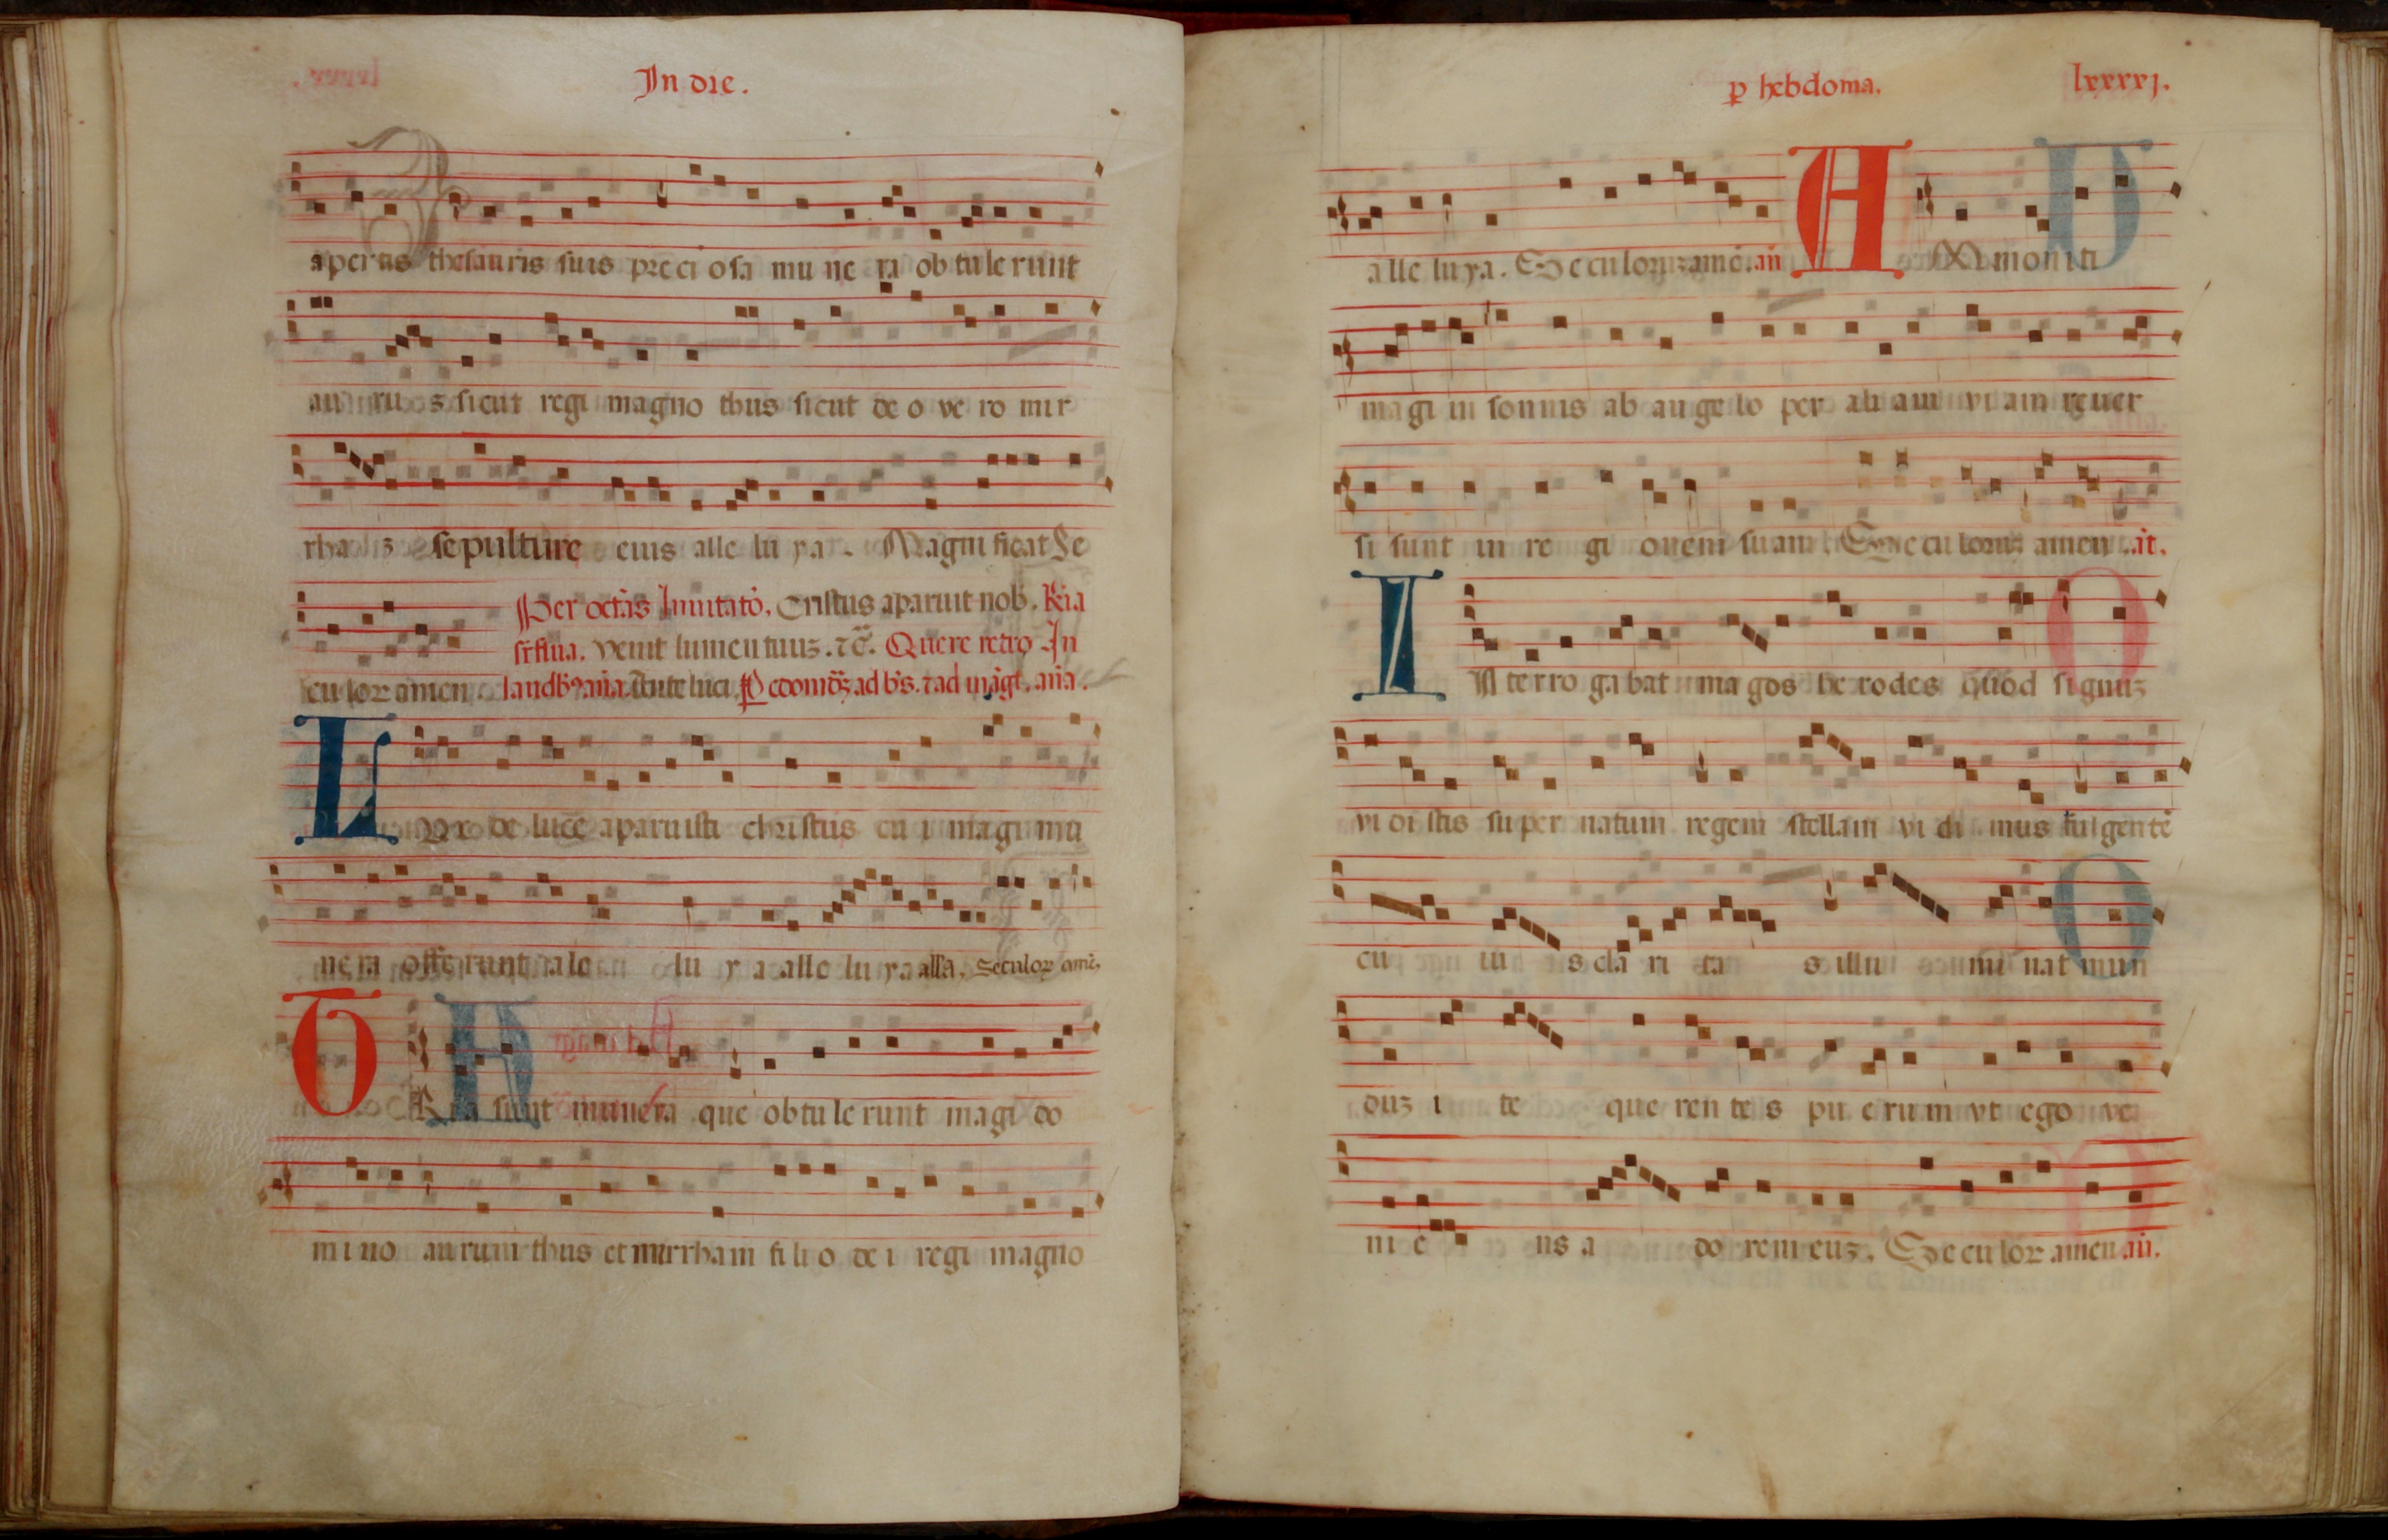 In die.
apertis thesauris suis preciosa mu ne ra ob tulerunt
au ru ʒ sicut regi magno thus sicut de o ve ro mir
rha ʒ sepulture eius alle lu ya. Magnificat Se
Per octãs Inuitatõ, Cristus aparuit nob. Rña
sr̃ fiua. venit lumen tuuʒ. ⁊c̃. Quere retro In
cu lor amen laudbꝰ aña. Ante luci. ꝑ edomõʒ ad bñs. ⁊ ad mãgt. aña.
L Vx de luce aparuisti christus cu i magi mu
ne ra offe runt ale lu y a alle lu ya alla, Seculor amẽ.
T Ria sunt munera que obtulerunt magi do
mino aurum thus et mirrham fi li o de i regi magno
p hebdoma. lxxxxj.
alle luya. Seculoruʒ amẽ. añ A Dmoniti
magi in somnis ab angelo per aliam viam reuer
si sunt in re gi onem suam. Seculoruʒ amen. añ.
I Nterrogabat magos herodes quod signuʒ
vidistis super natum regem stellam vi di mus fulgentẽ
cu iu s cla ri ta s illu mi nat mun
duʒ i te que ren te s pu erum vt ego ve
ni e ns a do rem euʒ. Seculor amen añ.